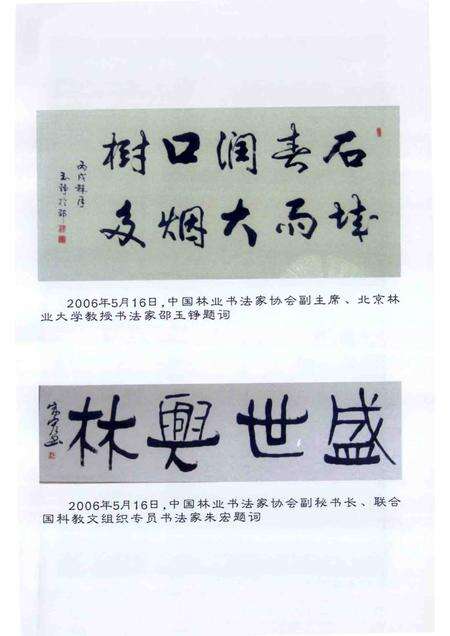 石城
春雨
润大
口烟
树多
丙戌
玉铮
2006年5月16日,中国林业书法家协会副主席、北京林
业大学教授书法家邵玉铮题词
盛世興林
2006年5月16日,中国林业书法家协会副秘书长、联合
国科教文组织专员书法家朱宏题词